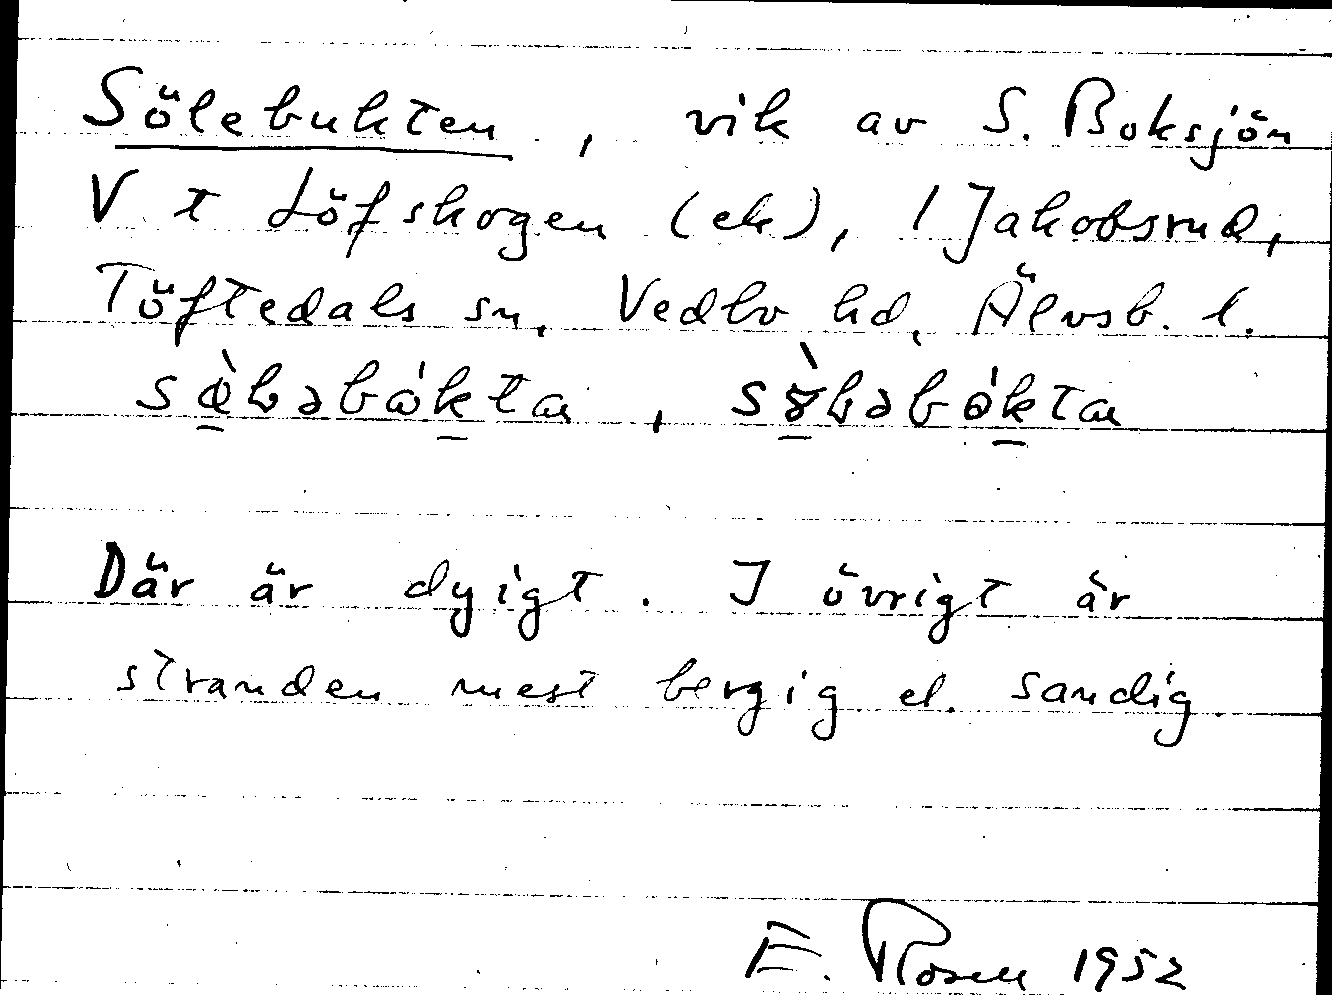 Sölebukten, vik av S. Boksjön
V t Löfskogen (ek), 1 Jakobsrud,
Töftedals sn, Vedbo hd, Älvsb. l.
Där är dyigt. I övrigt är
stranden mest bergig el. sandig.
E. Rosell 1952